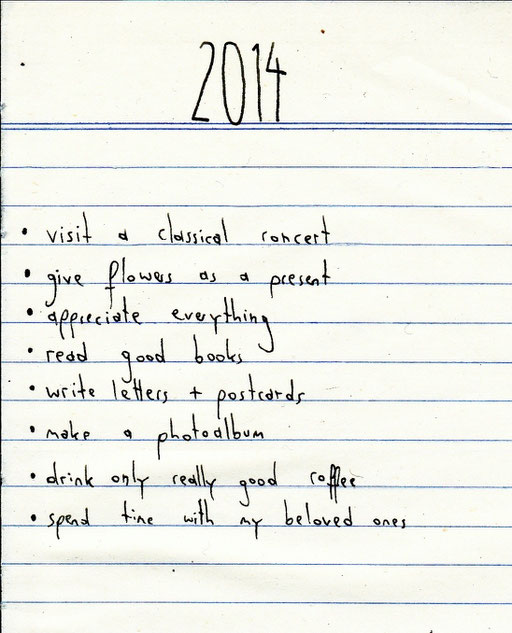 2014
• visit a classical concert
• give flowers as a present
• appreciate everything
• read good books
• write letters + postcards
• make a photoalbum
• drink only really good coffee
• spend time with my beloved ones